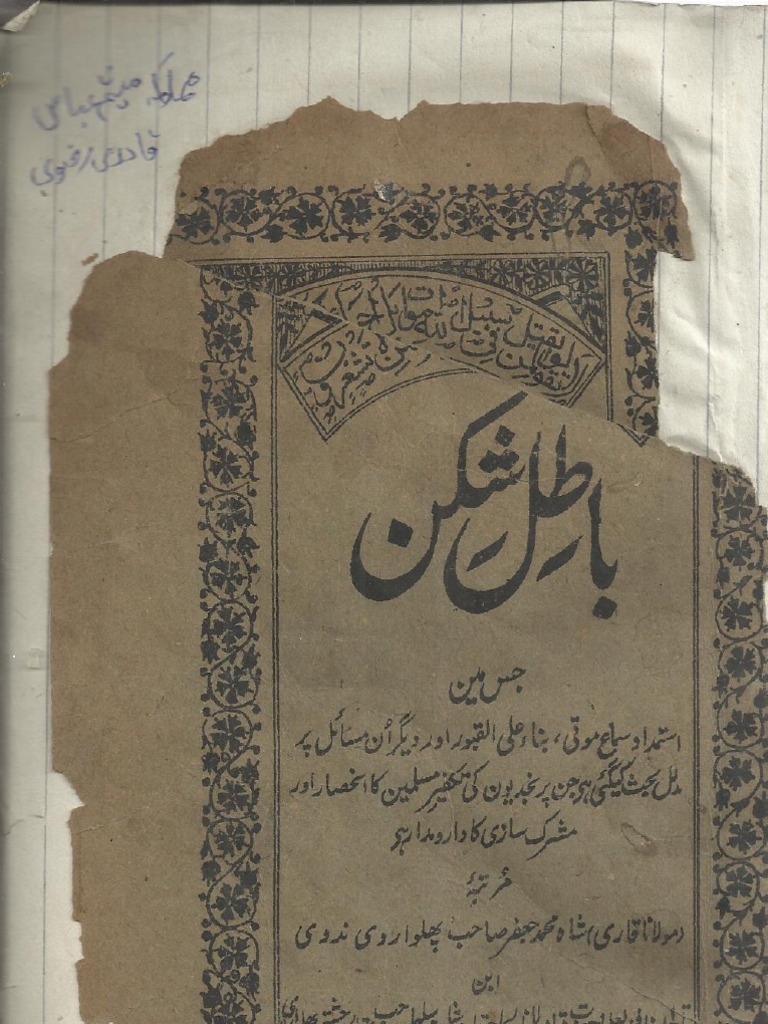 میثم عباس
قادری رضوی
ولا تقولوا لمن یقتل فی سبیل اللہ اموات بل احیاء
ولکن لا تشعرون
باطل شکن
جس مین
استمداد سماع موتی، بناء علی القبور اور دیگر اُن مسائل پر
مدلل بحث کیگئی ہی جن پر نجدیون کی تکفیر مسلمین کا انحصار اور
مشرک سازی کا دارومدار ہی
مُرتبۂ
(مولانا قاری) شاہ محمد جعفر صاحب پھلواروی ندوی
ابن